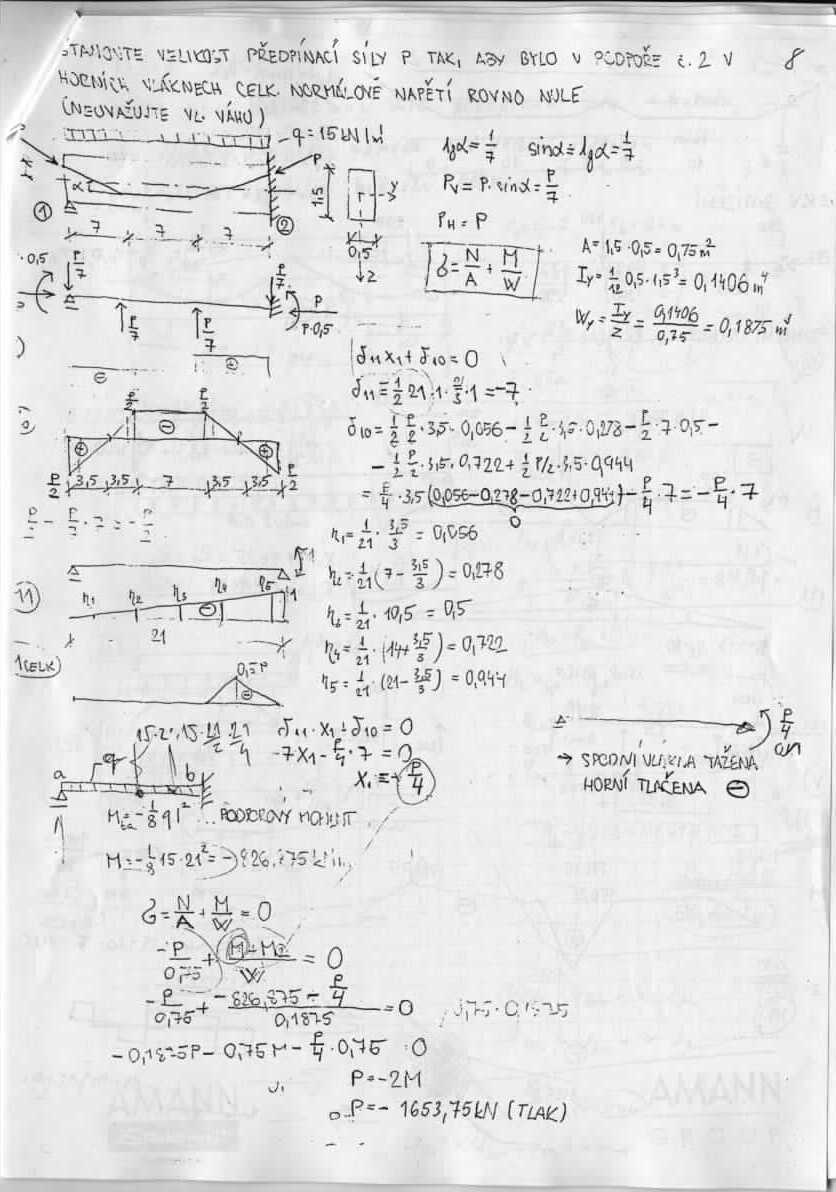 STANOVTE VELIKOST PŘEDPÍNACÍ SÍLY P TAK, ABY BYLO V PODPOŘE č. 2 V 8
HORNÍCH VLÁKNECH CELK. NORMÁLOVÉ NAPĚTÍ ROVNO NULE
(NEUVAŽUJTE VL. VÁHU)
q = 15 kN/m
tgα = 1/7 sinα = tgα = 1/7
P
1,5
Pv = P · sinα = P/7
α
y
PH = P
1
2
7 7 7
0,5
z
A = 1,5 · 0,5 = 0,75 m²
σ = N/A + M/W
Iy = 1/12 0,5 · 1,5³ = 0,1406 m⁴
Wy = Iy/z = 0,1406/0,75 = 0,1875 m³
· 0,5 P/7 P/7 P
P/7 P/7 P·0,5
δ11 x1 + δ10 = 0
δ11 = 1/2 21 · 1 · 2/3 · 1 = -7
P/2 P/2
δ10 = 1/2 P/2 · 3,5 · 0,056 - 1/2 P/2 · 3,5 · 0,278 - P/2 · 7 · 0,5 -
- 1/2 P/2 · 3,5 · 0,722 + 1/2 P/2 · 3,5 · 0,944
P/2 3,5 3,5 7 3,5 3,5 P/2
= P/4 · 3,5 (0,056 - 0,278 - 0,722 + 0,944) - P/4 · 7 = - P/4 · 7
0
P/2 - P/7 · 7 = - P/2
η1 = 1/21 · 3,5/3 = 0,056
1
η2 = 1/21 (7 - 3,5/3) = 0,278
11)
η1 η2 η3 η4 η5 1
η3 = 1/21 · 10,5 = 0,5
21
η4 = 1/21 · (14 + 3,5/3) = 0,722
1(CELK)
η5 = 1/21 · (21 - 3,5/3) = 0,944
δ11 · x1 + δ10 = 0
-7x1 - P/4 · 7 = 0
x1 = - P/4
P/4
→ SPODNÍ VLÁKNA TAŽENA
HORNÍ TLAČENA ⊖
a q b
M = - 1/8 q l² ... PODPOROVÝ MOMENT
M = - 1/8 15 · 21² = - 826,875 kNm
σ = N/A + M/W = 0
- P/0,75 + = 0
W
- P/0,75 + -826,875 - P/4 / 0,1875 = 0 0,75 · 0,1875
- 0,1875P - 0,75M - P/4 · 0,75 = 0
P = -2M
P = - 1653,75 kN (TLAK)